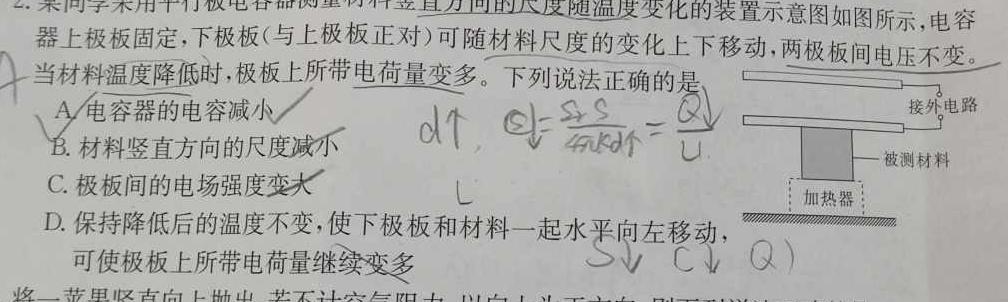 2. 某同学采用平行板电容器测量材料竖直方向的尺度随温度变化的装置示意图如图所示,电容
器上极板固定,下极板(与上极板正对)可随材料尺度的变化上下移动,两极板间电压不变。
当材料温度降低时,极板上所带电荷量变多。下列说法正确的是
A. 电容器的电容减小
B. 材料竖直方向的尺度减小
C. 极板间的电场强度变大
D. 保持降低后的温度不变,使下极板和材料一起水平向左移动,
可使极板上所带电荷量继续变多
接外电路
被测材料
加热器
d↑, C↓= εrS/4πkd↑ = Q↓/U
S↓ C↓ Q
将一苹果竖直向上抛出